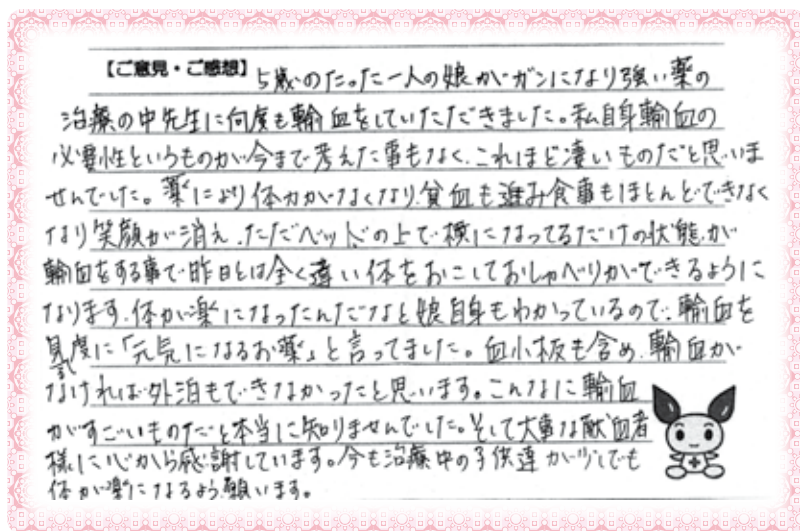 【ご意見・ご感想】 5歳のたった一人の娘がガンになり強い薬の
治療の中先生に何度も輸血をしていただきました。私自身輸血の
必要性というものが今まで考えた事もなく、これほど凄いものだと思いま
せんでした。薬により体力がなくなり、貧血も進み食事もほとんどできなく
なり笑顔が消え、ただベッドの上で横になってるだけの状態が
輸血をする事で昨日とは全く違い体をおこしておしゃべりができるように
なります。体が楽になったんだなと娘自身もわかっているので、輸血を
見る度に「元気になるお薬」と言ってました。血小板も含め、輸血が
なければ外泊もできなかったと思います。こんなに輸血
がすごいものだと本当に知りませんでした。そして大事な献血者
様に心から感謝しています。今も治療中の子供達が少しでも
体が楽になるよう願います。